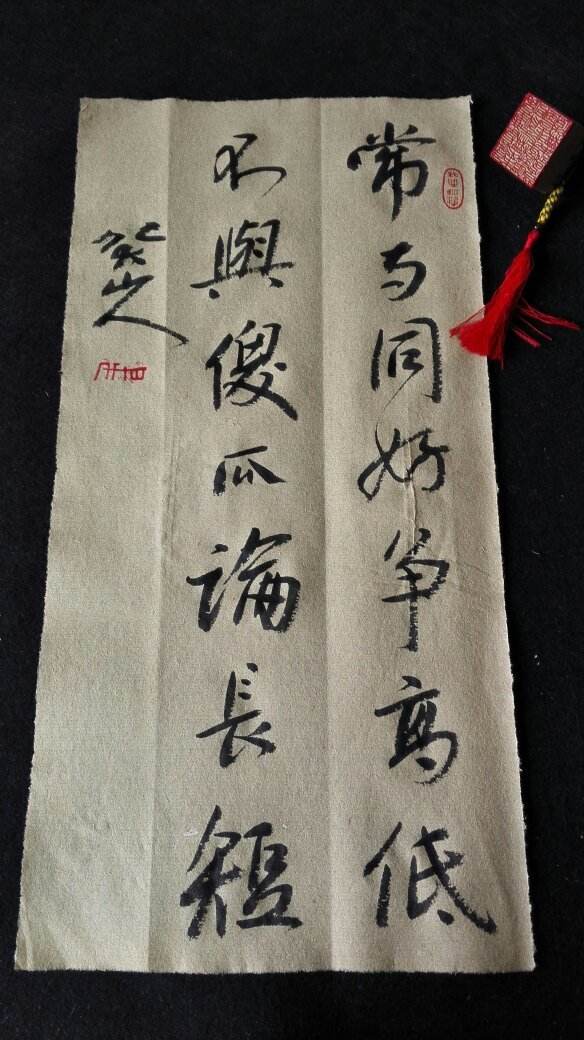 常与同好争高低
不與傻瓜論長短